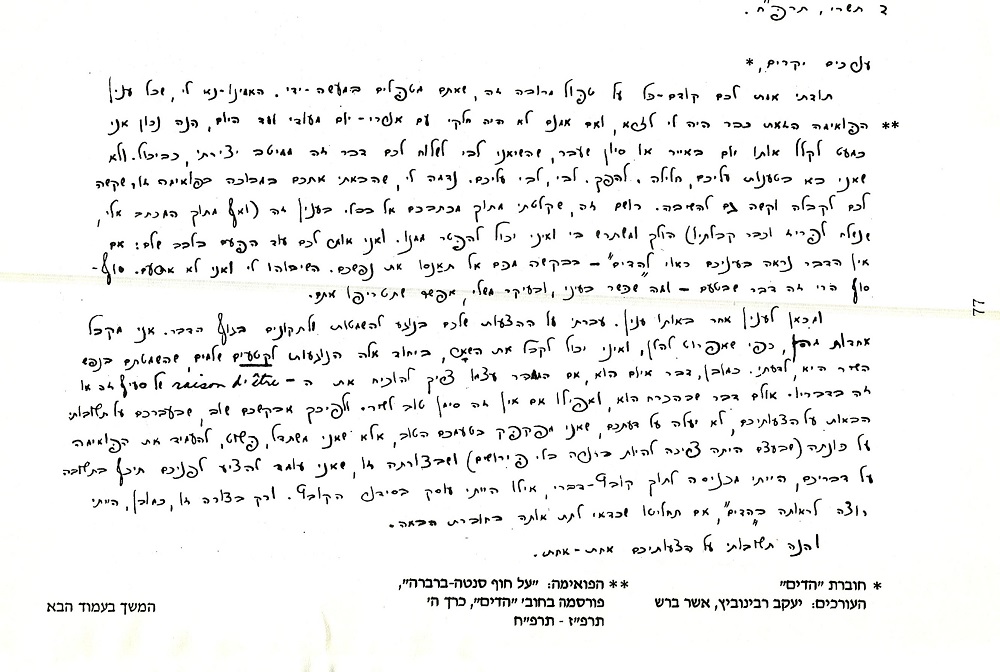 ד תשרי, תרפ"ח.
עורכים יקרים,*
תודתי אתת לכם קודם-כל על טפול מרובה זה, שאתם מטפלים במעשה-ידי. האמינו-נא לי, שכל ענין
** הפואימה הזאת כבר היה לי לזרא, ואם אמנם לא היה חלקי עם אנשי- יום מעודי ועד היום, הנה נכון אני
כמעט לקלל אותו יום באייר או סיון שעבר, שהשיאני לבי לשלוח לכם דבר זה ממיטב יצירתי, כביכול. ולא
שאני בא בטענות עליכם, חלילה. להפך. לבי, לבי עליכם. נדמה לי, שהבאתי אתכם במבוכה בפואימה זו, שקשה
לכם לקבלה וקשה גם להשיבה. רושם זה, שקלטתי מתוך מכתבכם אל בכל. בענין זה (ואף מתוך המכתב אלי,
שנשלח לפריז וכבר קבלתיו) הולך ומשתרש בי ואיני יכול להפטר ממנו. ואני אומר לכם עוד הפעם בלבב שלם: אם
אין הדבר נראה בעיניכם ראוי "להדים" – בבקשה מכם אל תאנסו את נפשכם. השיבוהו לי ואני לא אתרעם. סוף-
סוף הרי זה דבר שבטעם – ומה שכשר בעיני, ובעיקר משלי, אפשר שתטריפו אתם.
ומכאן לענין אחר באותו ענין. עברתי על ההצעות שלכם בנוגע להשמטות ולתקונים בגוף הדבר. אני מקבל
אחדות מהן, כפי שאפרוט להלן, ואיני יכול לקבל את השאר, ביחוד אלה הנוגעות לקטעים שלמים, שהשמטתם בנפש
השיר היא, לדעתי. כמובן, דבר איום הוא, אם המחבר עצמו צריך להוכיח את ה – raison d'être של סעיף זה או
זה בדבריו. אולם דבר שבהכרח הוא, ואפילו אם אין זה סימן טוב לשיר. ולפיכך אבקשכם שוב, שבעברכם על תשובותי
הבאות על הצעותיכם, לא יעלה על דעתכם, שאני מפקפק בטעמכם הטוב, אלא שאני משתדל, פשוט, להעמיד את הפואימה
על כונתה (שבעצם היתה צריכה להיות ברורה בלי פירושים) ושבצורתה זו, שאני עומד להציע לפניכם תיכף בתשובה
על דבריכם, הייתי מכניסה לתוך קובץ-דברי, אילו הייתי עוסק בסידור הקובץ. ורק בצורה זו, כמובן, הייתי
רוצה לראותה ב"הדים", אם תחליטו שכדאי לתת אותה בחוברת הבאה.
והנה תשובותי על הצעותיכם אחת-אחת.
77
* חוברת "הדים"
העורכים: יעקב רבינוביץ, אשר ברש
** הפואימה: "על חוף סנטה-ברברה",
פורסמה בחוב' "הדים", כרך ה'
תרפ"ז - תרפ"ח
המשך בעמוד הבא